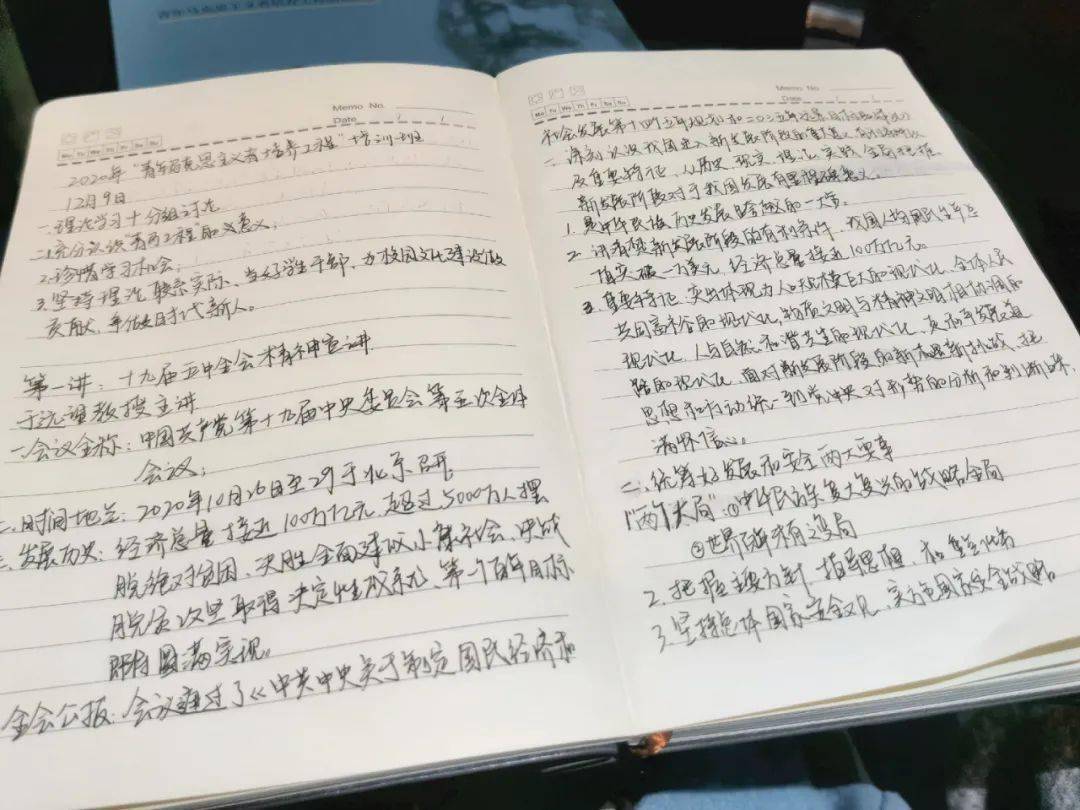 Memo No.
Date
Mo Tu We Th Fr Sa Su
2020年“青年马克思主义者培养工程”培训班
12月9日
一.理论学习十分组讨论
1.充分认识“青马工程”的义意义；
2.珍惜学习机会；
3.坚持理论联系实际、当好学生干部、为校园文化建设做
贡献、争做时代新人。
第一讲：十九届五中全会精神宣讲
教授主讲
一.会议全称：中国共产党第十九届中央委员会第五次全体
会议；
二.时间地点：2020年10月26日至29于北京召开
三.发展历史：经济总量接近100万亿元，超过5000万人摆
脱绝对贫困，决胜全面建成小康社会、决战
脱贫攻坚取得决定性成就，第一个百年目标
即将圆满实现。
全会公报：会议通过了《中共中央关于制定国民经济和
Memo No.
Date
Mo Tu We Th Fr Sa Su
社会发展第十四个五年规划和二〇三五年远景目标的建议》
一.深刻认识我国进入新发展阶段的重大意义
及重要特征，从历史、现实、理论、实践、全局把握
新发展阶段对于我国发展有里程碑意义。
1.是中华民族历史发展跨越的一大步。
2.新发展阶段的有利条件，我国人均国民生产总
值突破一万美元，经济总量接近100万亿元。
3.重要特征，突出体现为人口规模巨大的现代化、全体人民
共同富裕的现代化，物质文明与精神文明相协调的
现代化，人与自然和谐共生的现代化，走和平发展道
路的现代化，面对新发展阶段的新机遇新挑战，把
思想和行动统一到党中央对形势的分析和判断上来，
满怀信心。
二.统筹好发展和安全两大要事
1.“两个大局”：①中华民族伟大复兴的战略全局
②世界百年未有之变局
2.把握方针、指导思想、和
3.坚持总体国家安全观、实施国家安全战略。